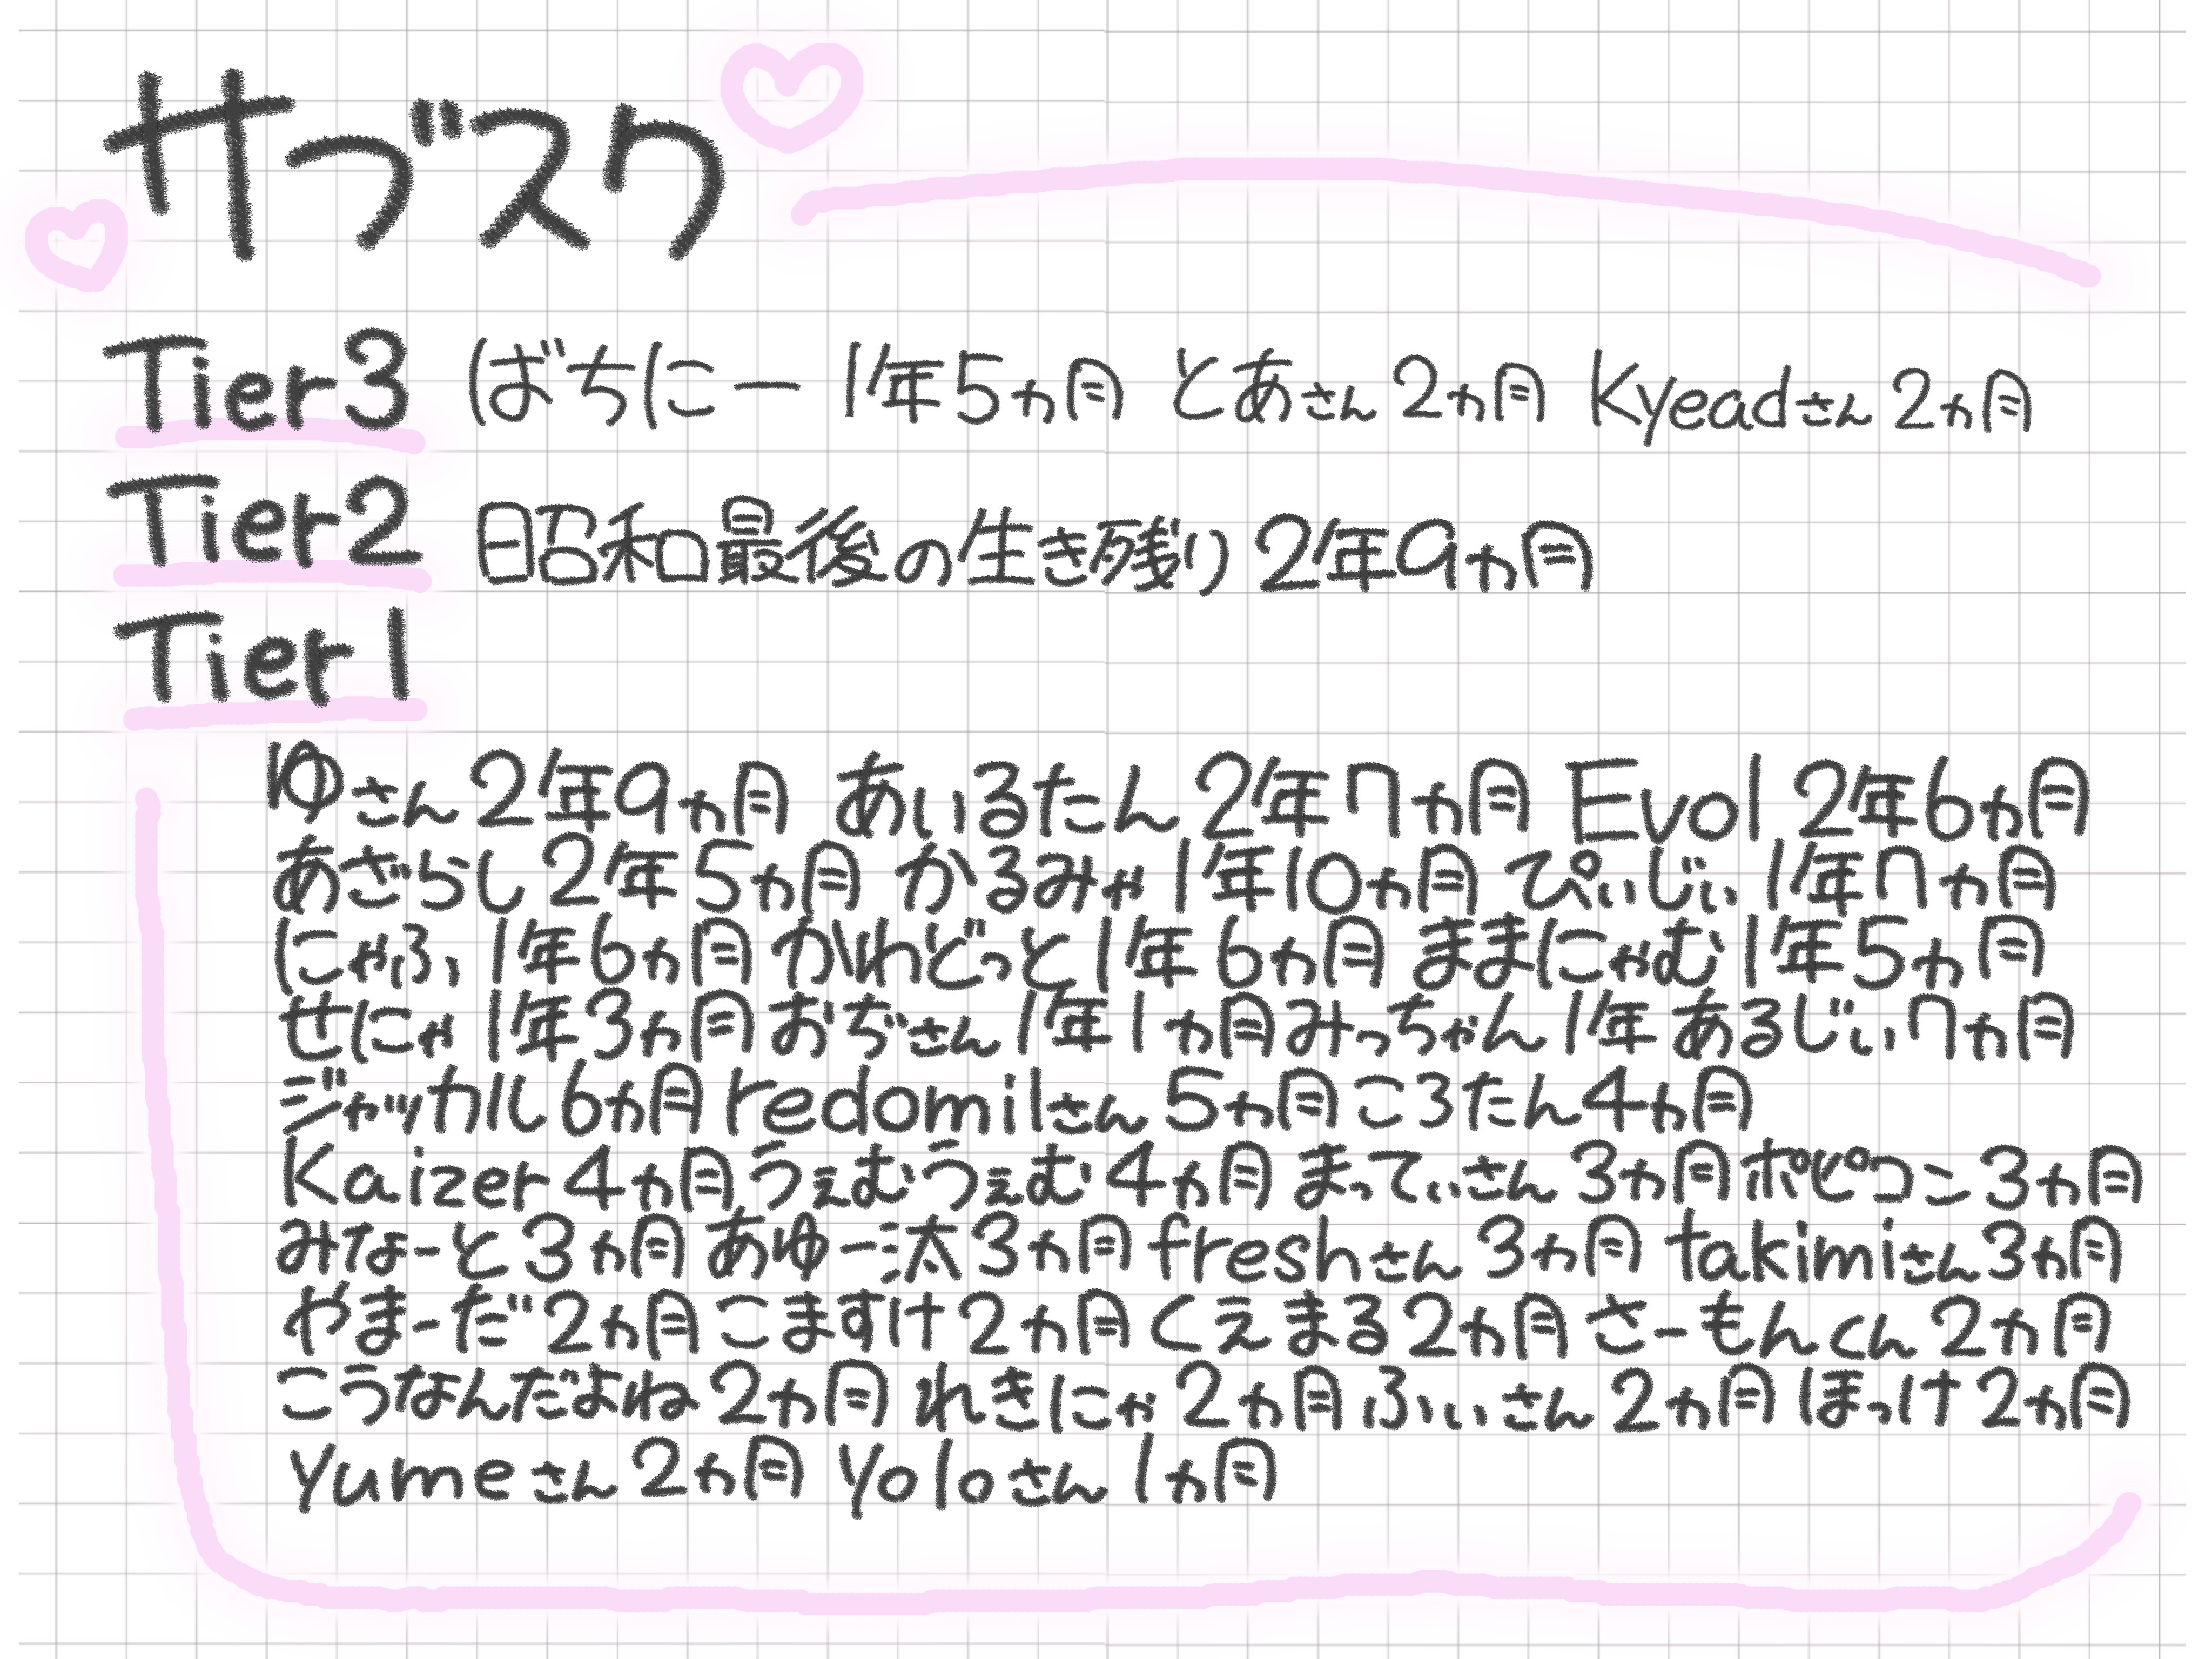 サブスク
Tier3 ばちにー 1年5ヵ月 とあさん 2ヵ月 Kyeadさん 2ヵ月
Tier2 昭和最後の生き残り 2年9ヵ月
Tier1
ゆさん 2年9ヵ月 あいるたん 2年7ヵ月 Evol 2年6ヵ月
あざらし 2年5ヵ月 かるみゃ 1年10ヵ月 ぴぃじぃ 1年7ヵ月
にゃふぃ 1年6ヵ月 がわどっと 1年6ヵ月 ままにゃむ 1年5ヵ月
せにゃ 1年3ヵ月 おぢさん 1年1ヵ月 みっちゃん 1年 あるじぃ 7ヵ月
ジャッカル 6ヵ月 redomilさん 5ヵ月 ころたん 4ヵ月
Kaizer 4ヵ月 うぇむうぇむ 4ヵ月 まってぃさん 3ヵ月 ポピコン 3ヵ月
みなーと 3ヵ月 あゆー汰 3ヵ月 freshさん 3ヵ月 takimiさん 3ヵ月
やまーだ 2ヵ月 こますけ 2ヵ月 くえまる 2ヵ月 さーもんくん 2ヵ月
こうなんだよね 2ヵ月 れきにゃ 2ヵ月 ふぃさん 2ヵ月 ほっけ 2ヵ月
yumeさん 2ヵ月 yoloさん 1ヵ月